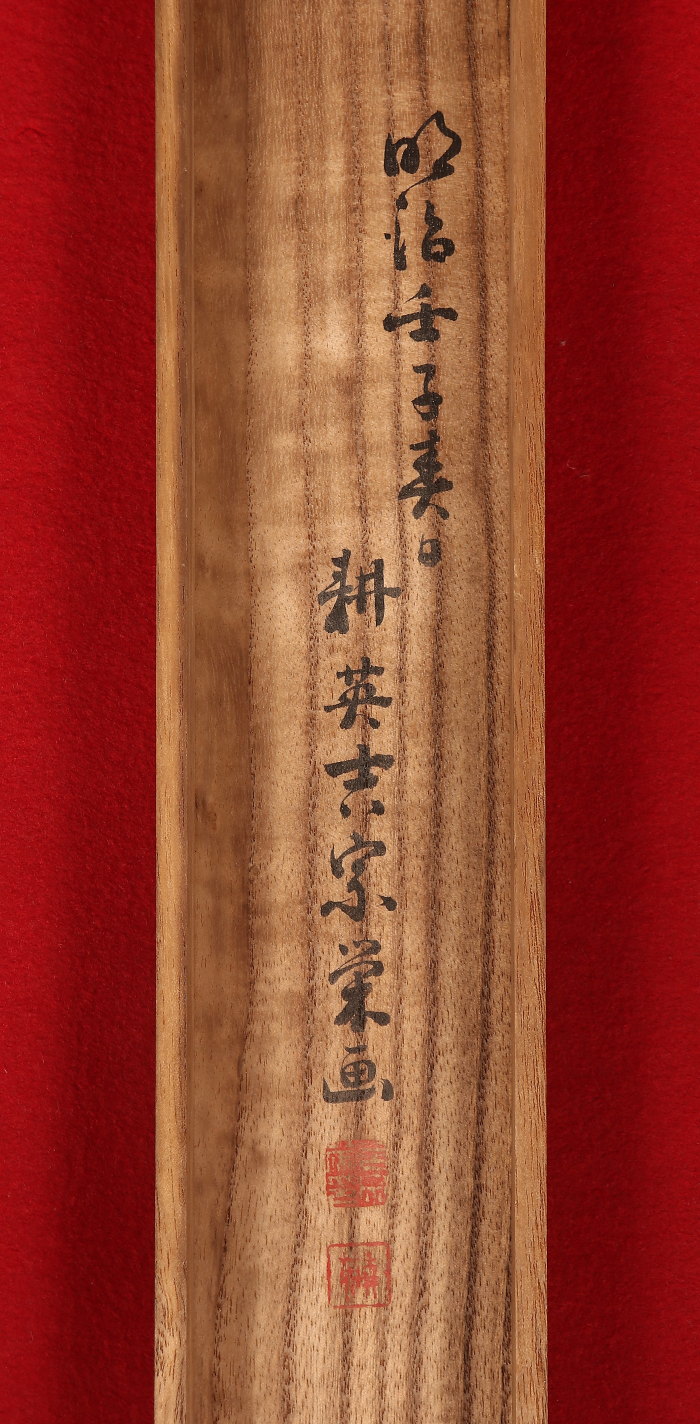 明治壬子春日
耕英吉宗栄画